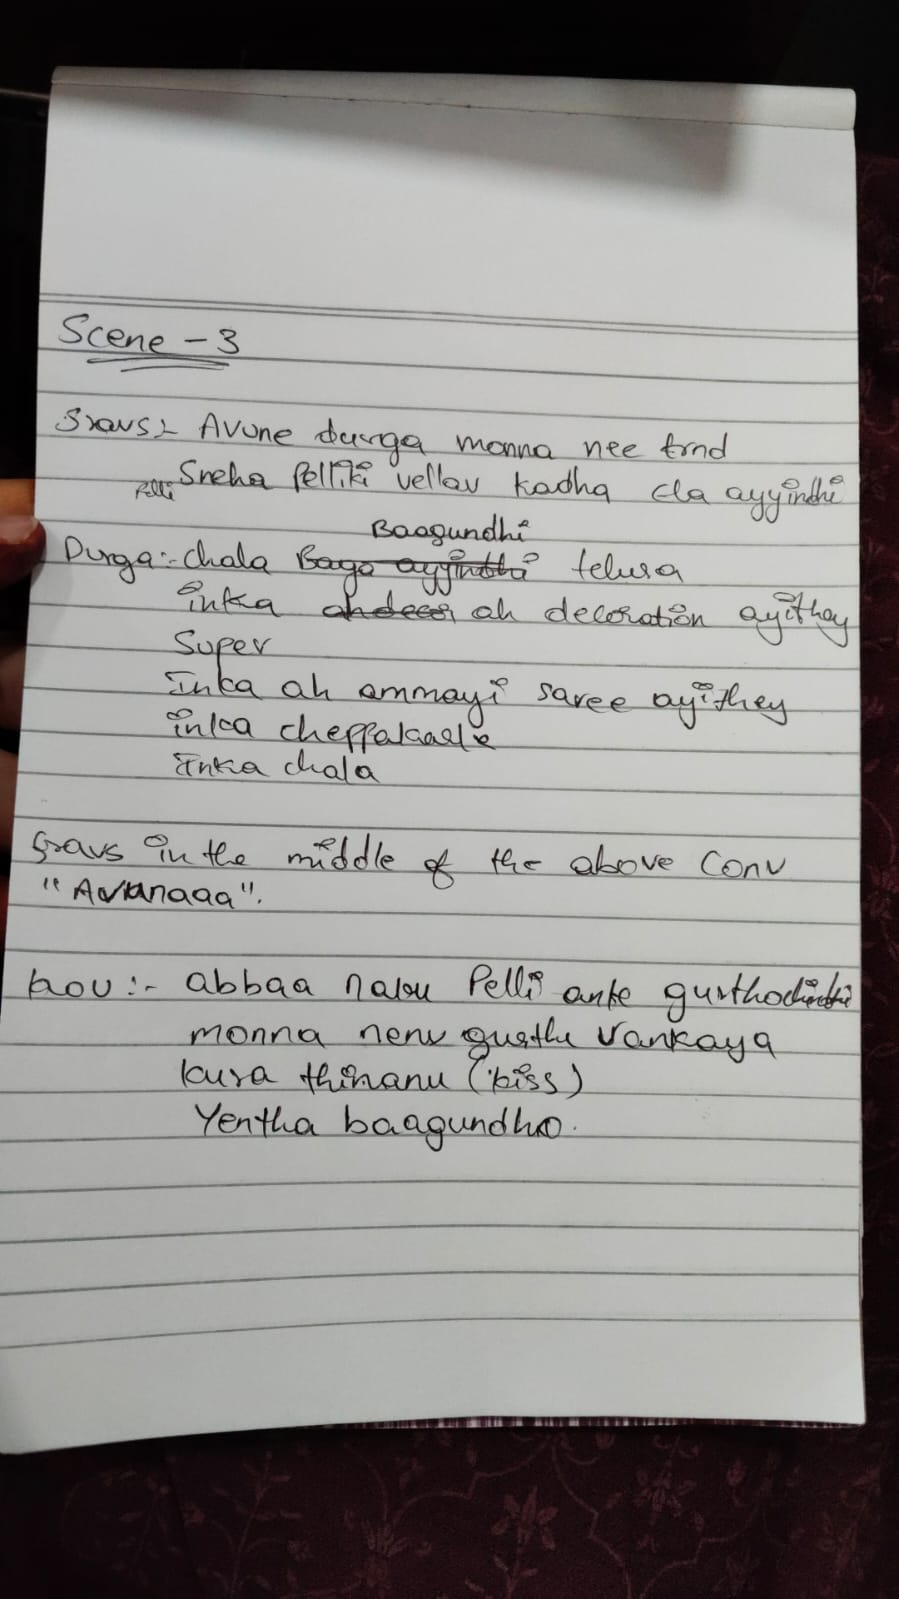 Scene - 3
Sravs :- Avune durga monna nee frnd
Sneha Pelliki vellav kadha ela ayyindhi
Pelli
Baagundhi
Durga :- chala Baga ayyindhi telusa
inka ah decoration ayithey
Super
Inka ah ammayi saree ayithey
inka cheppakarle
Inka chala
Sravs in the middle of the above Conv
"Avunaaa".
kou :- abbaa naku Pelli ante gurthochindhi
monna nenu guthu Vankaya
kura thinanu (kiss)
Yentha baagundho.